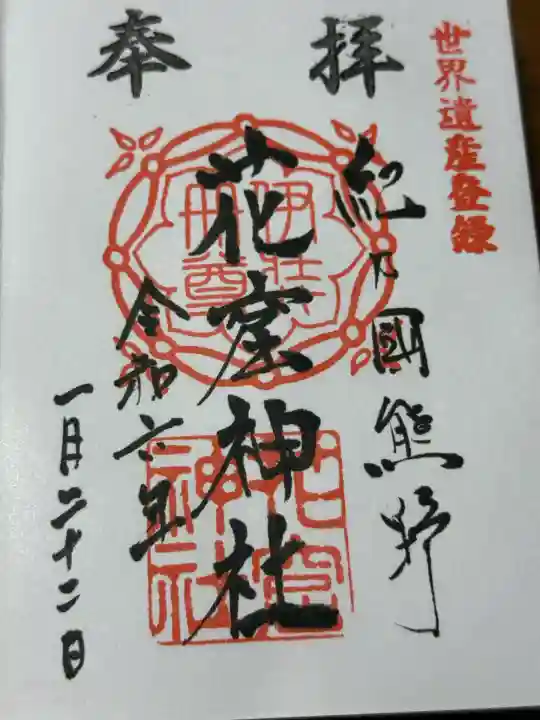 世界遺産登録
奉拝
紀乃國熊野
花窟神社
伊弉冊尊
花窟神社
令和六年
一月二十二日